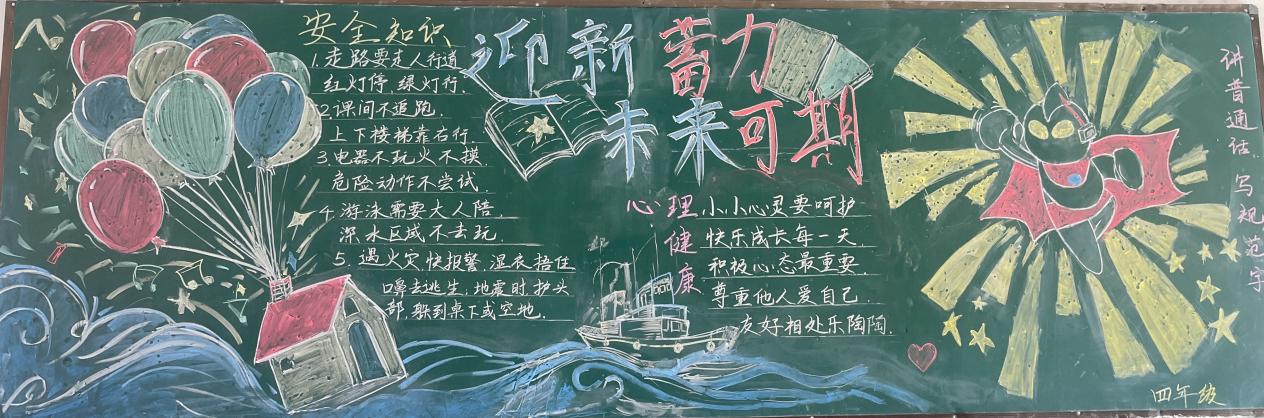 安全知识
1.走路要走人行道
红灯停,绿灯行.
2.课间不追跑.
上下楼梯靠右行.
3.电器不玩火不摸.
危险动作不尝试.
4.游泳需要大人陪.
深水区域不去玩.
5.遇火灾,快报警,湿衣捂住
嘴去逃生,地震时护头
部,躲到桌下或空地.
迎新蓄力
未来可期
心理健康
小小心灵要呵护
快乐成长每一天.
积极心态最重要.
尊重他人爱自己.
友好相处乐陶陶.
讲普通话.写规范字
四年级